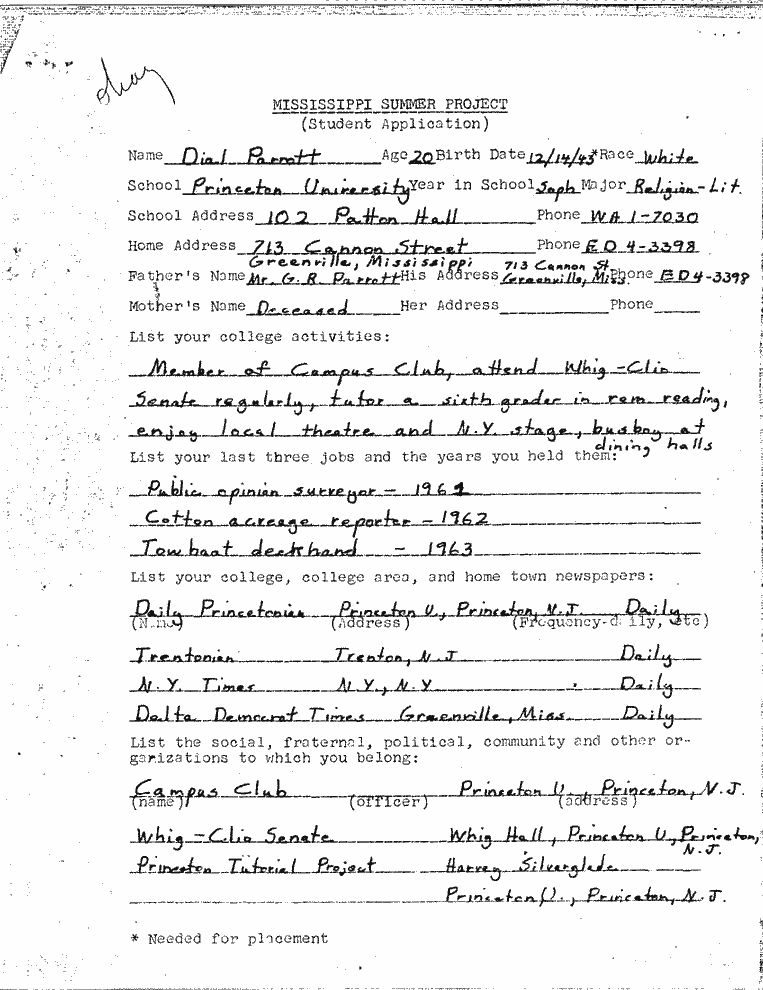 okay
MISSISSIPPI SUMMER PROJECT
(Student Application)
Name Dial Parrott Age 20 Birth Date 12/14/43 *Race White
School Princeton University Year in School Soph Major Religion-Lit.
School Address 102 Patton Hall Phone WA 1-7030
Home Address 713 Cannon Street Phone ED 4-3398
Greenville, Mississippi 713 Cannon St.
Father's Name Mr. G. R. Parrott His Address Greenville, Miss. Phone ED 4-3398
Mother's Name Deceased Her Address Phone
List your college activities:
Member of Campus Club, attend Whig-Clio
Senate regularly, tutor a sixth grader in rem. reading,
enjoy local theatre and N.Y. stage, busboy at
dining halls
List your last three jobs and the years you held them:
Public opinion surveyor - 1961
Cotton acreage reporter - 1962
Tow boat deckhand - 1963
List your college, college area, and home town newspapers:
Daily Princetonian Princeton U., Princeton, N.J. Daily
(Name) (Address) (Frequency-daily, etc)
Trentonian Trenton, N.J. Daily
N.Y. Times N.Y., N.Y. Daily
Delta Democrat Times Greenville, Miss. Daily
List the social, fraternal, political, community and other or-
ganizations to which you belong:
Campus Club Princeton U., Princeton, N.J.
(name) (officer) (address)
Whig-Clio Senate Whig Hall, Princeton U., Princeton,
N.J.
Princeton Tutorial Project Harvey Silverglade
Princeton U., Princeton, N.J.
* Needed for placement